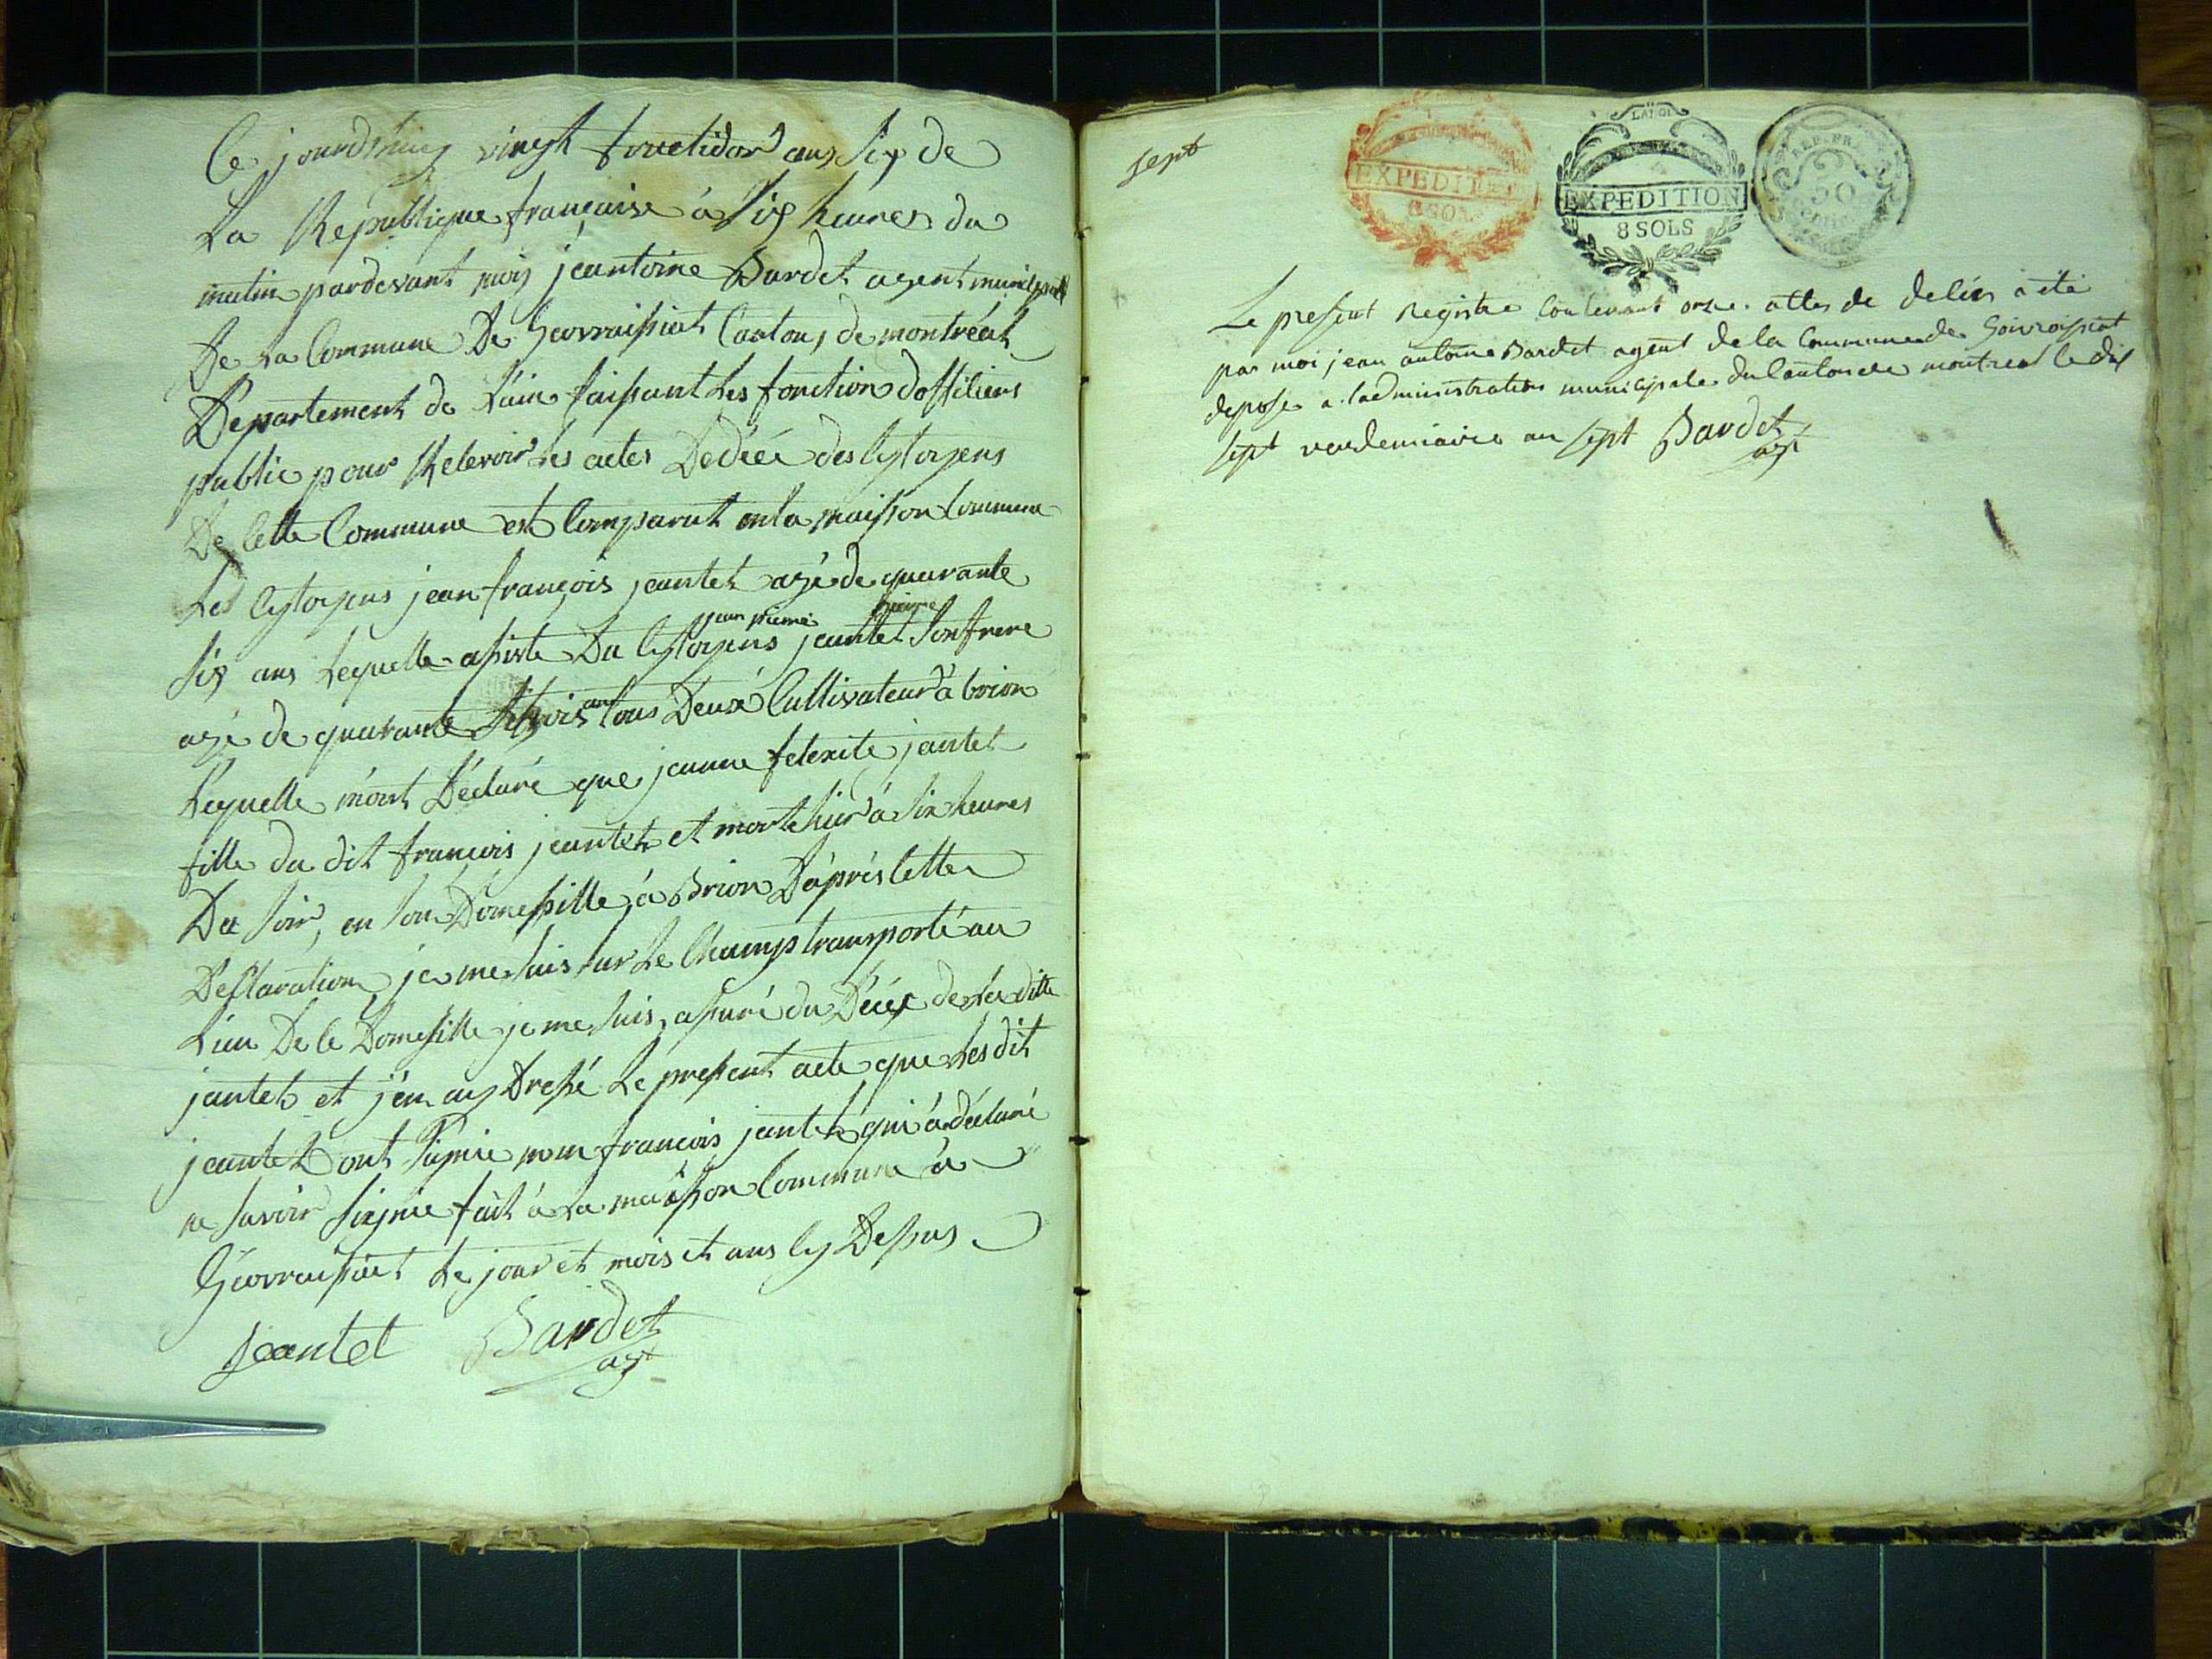 Ce jourdhuy vingt fructidor ans six de
La Republique française à six heures du
matin pardevant moy jeantoine Bardet agent municipal
De La Commune De Géovraissiat Canton de montréal
Département de L'ain faissant Les fonction dofficiers
public pour Recevoir Les actes Décée des Cytoyens
De Cette Commune est Comparut en la maisson Commune
Les Cytoyens jean françois jeantet agé de quarante
six ans Lequelle assiste Du Cytoyens jean pierre jeantet son frere
agé de quarante trois ans tous Deux Cultivateur à brion
Lequelle m'ont Déclaré que jeanne felexite jantet
fille du dit françois jeantet et morte hier à six heures
Du soir, en son Domessille, à Brion D'après Cette
Desclaration je me suis sur Le Champs transporté au
Lieu De Ce Domessille je me suis assuré du Décés de La ditte
jantet et j'en ay Dressé Le present acte que Les dit
jeantet ont signie non françois jantet qui à déclaré
ne savoir signie fait à La maisson Commune à
Géovraissiat Le jour et mois et ans Cy Dessus
Jeantet Bardet
agt
sept
EXPEDITION
8 SOLS
EXPEDITION
8 SOLS
REP. FR.
50
Le present Registre Contenant onze actes de deces à été
par moi jean antoine Bardet agent de la Commune de Goivroissiat
deposé a ladministration municipale du Canton de montreal le dix
sept vendemiaire an sept Bardet
agt